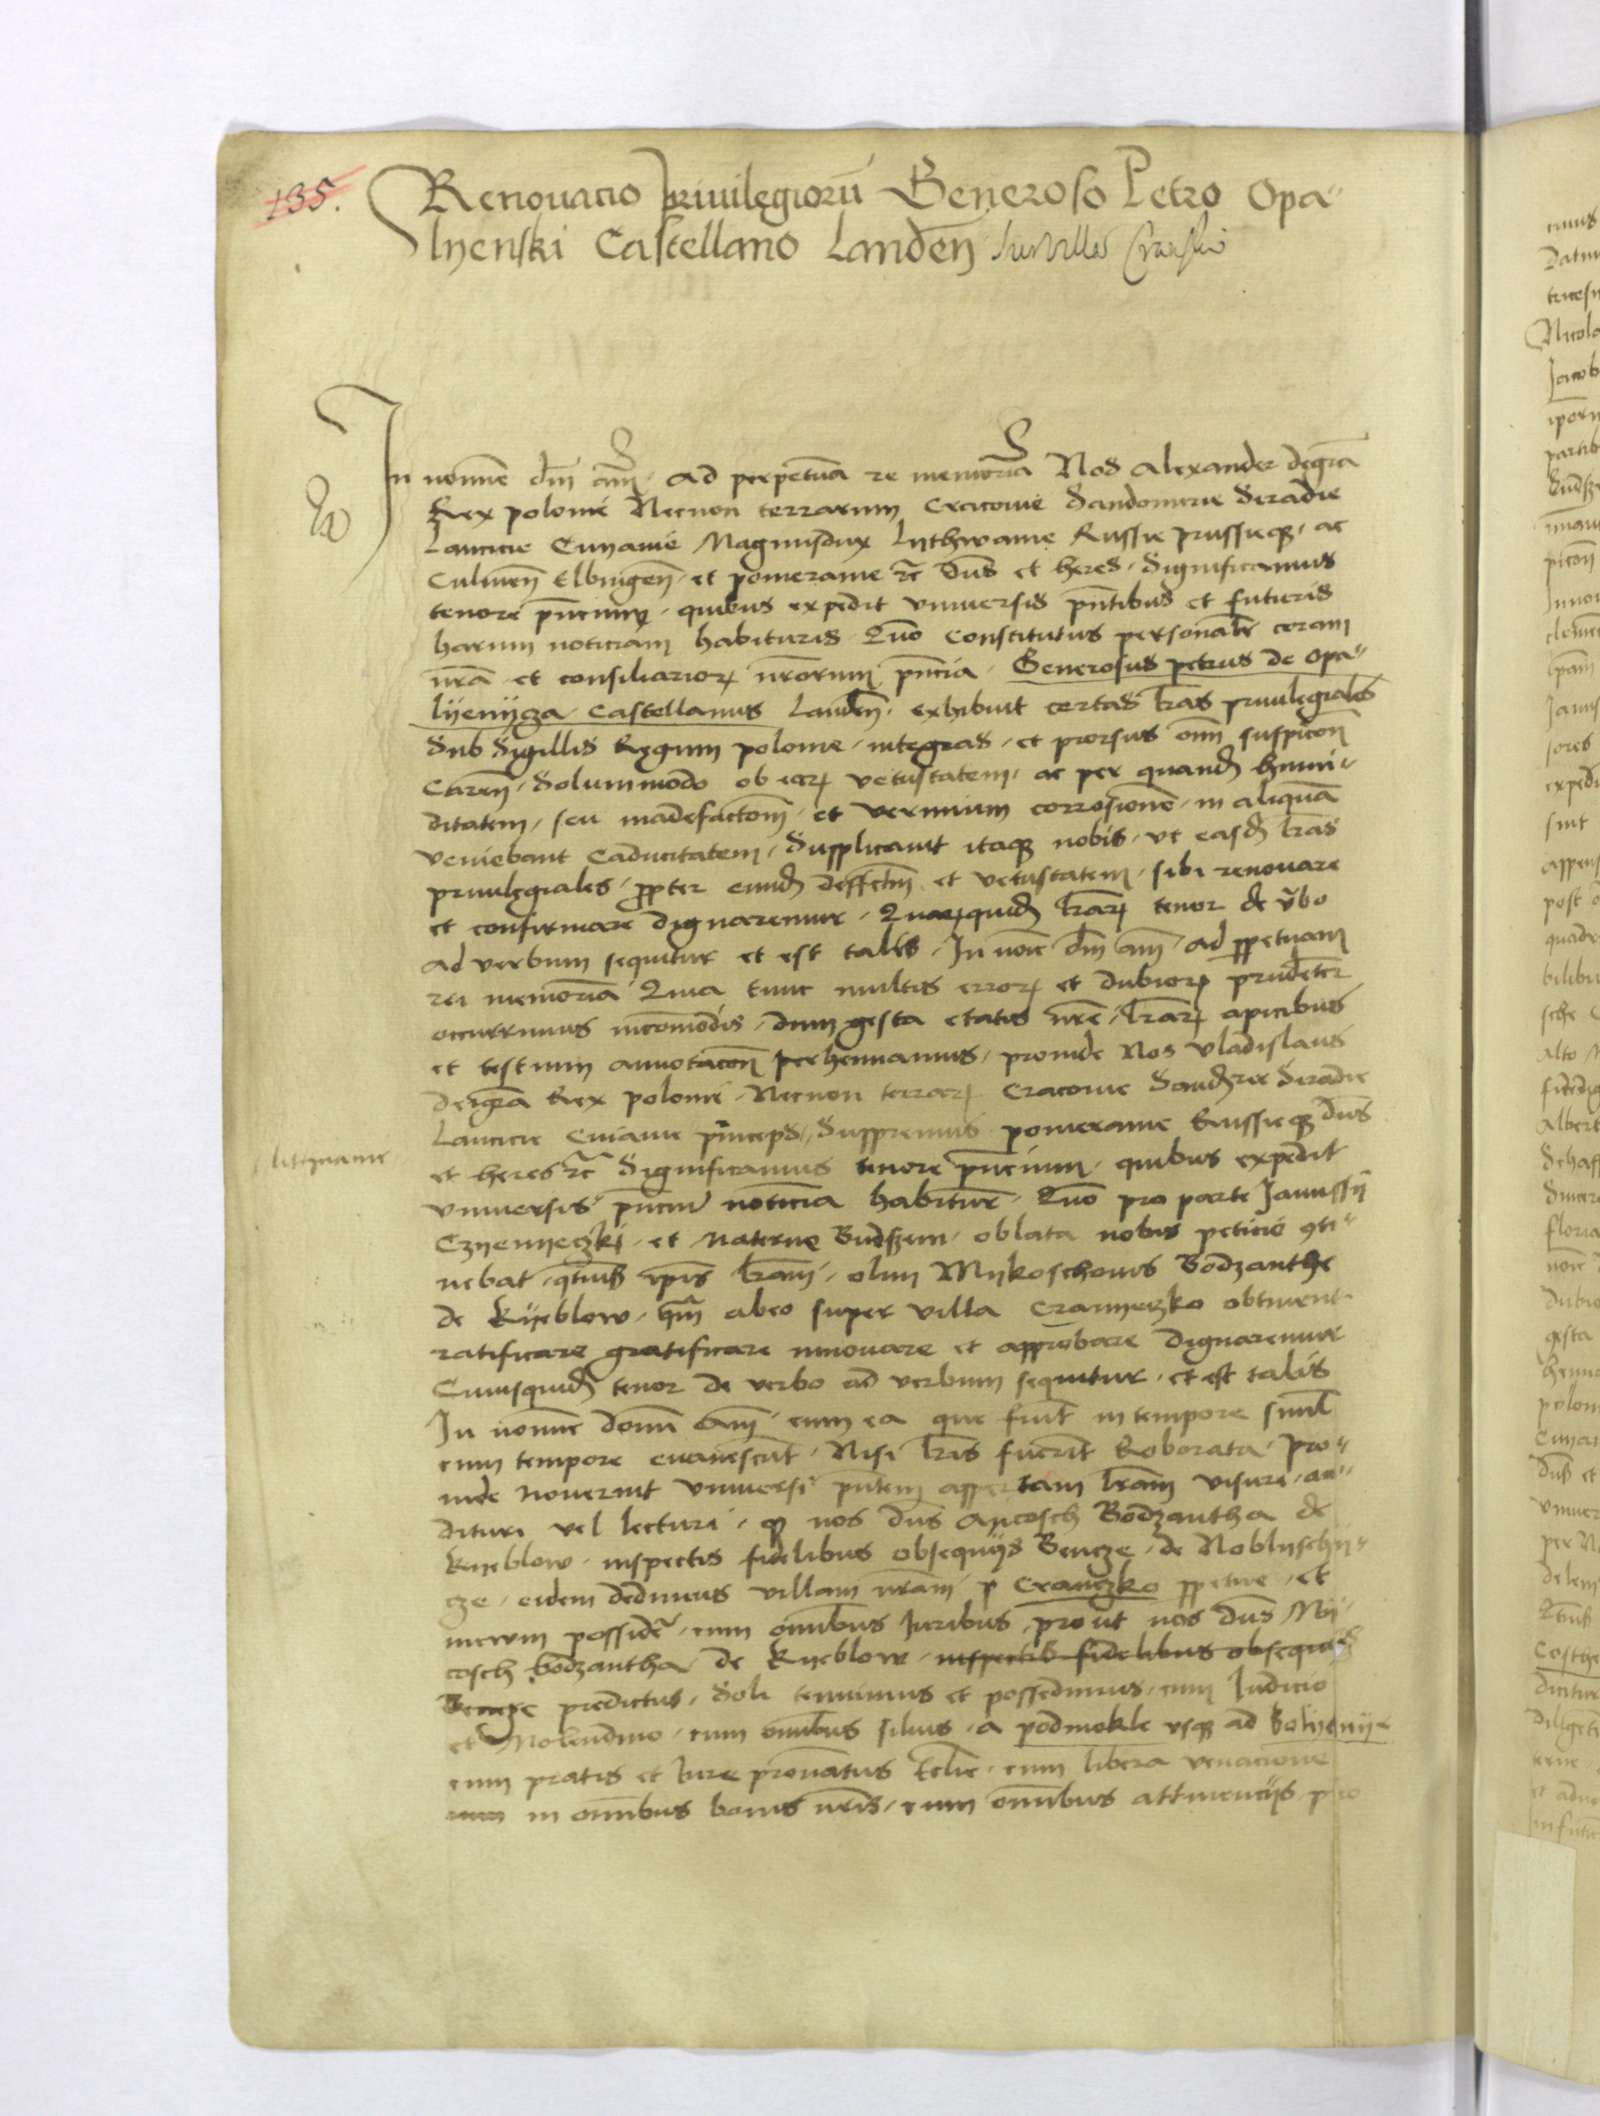 135.
Renouacio priuilegiorũ Generoso Petro Opa"
lyenski Castellano Landeñ
In nomine dñi am̃ Ad perpetuã re memoriã Nos Alexander dei grã
Rex polonie Necnon terrarum Cracouie Sandomirie Siradie
Lancicie Cuyauie Magnusdux Lythwanie Russie prussieq̃ ac
Culmeñ Elbingeñ et pomeranie rc̃ Dns et heres Significamus
tenore pñcium quibus expedit vniuersis pñtibus et futuris
harum noticiam habituris Quõ Constitutus personalr̃ coram
nrã et consiliarioꝝ nrõrum pñcia Generosus petrus de Opa"
lyenycza Castellanus Landeñ exhibuit certas lrãs priuilegiales
Sub Sigillis Regum polonie integras et prorsus om̃i suspicoñ
Careñ Solummodo ob eaꝝ vetustatem ac per quandã humi"
ditatem seu madefactoñ et vermium corrosionẽ in aliquã
veniebant Caducitatem Supplicauit itaq̃ nobis vt easd̃ lrãs
priuilegiales ꝓpter eund̃ deffectũ et vetustatem sibi renouare
et confirmare dignaremur Quaꝝquid̃ lrãꝝ tenor de v̑bo
ad verbum sequitur et est talis In noĩe dñi am̃ Ad ꝑpetuam
rei memoriã Quia tunc multis erroꝝ et dubioꝝ prudenter
occurrimus incomodis dum gesta etatis nrẽ lrãꝝ apicibus
et testium annotacoñ perhennamus proinde Nos Vladislaus
dei grã Rex polonie Necnon terraꝝ Cracouie Sandom̃rie Siradie
Lancicie Cuiauie princeps Suppremus pomeranie Russieq̃ dns
lithuanie
et heres rc̃ Significamus tenore pñcium quibus expedit
vniuersis pñcium noticiã habitur̃ Quõ pro parte Janussij
Czyenyeczki et Naterne Budszem oblata nobis peticio ꝯti"
nebat q̃tinus ip̃is lrãm olim Mykoschouis Bodzanthe
de Kyeblow quã abeo super villa Cranyeczko obtinent
ratificare gratificare innouare et approbare dignaremur
Cuiusquid̃ tenor de verbo ad verbum sequitur et est talis
In nomine domi am̃ cum ea que fiũt in tempore simul
cum tempore euanescũt Nisi lrĩs fuerĩt Roborata Pro"
inde nouerint vniuersi pñtem appertam lrãm visuri au"
dituri vel lecturi ꝙ nos dns Mycosch Bodzantha de
Kyeblow inspectis fidelibus obsequijs Bencze de Noblyschy"
cze eidem dedimus villam nrãm Cranczko ꝑpetue et
meum possidẽ cum omĩbus Juribus prout nos dns My"
cosch bodzantha de Kyeblow inspectis fidelibus obsequijs
Bencze predictus Soli tenuimus et possedimus cum Judicio
et Molendino cum omĩbus siluis a podmokle vsq̃ ad Golyeny"
cum pratis et Jure cum libera venacione
cum in omĩbus bonis nrĩs cum omĩbus attinencijs pro